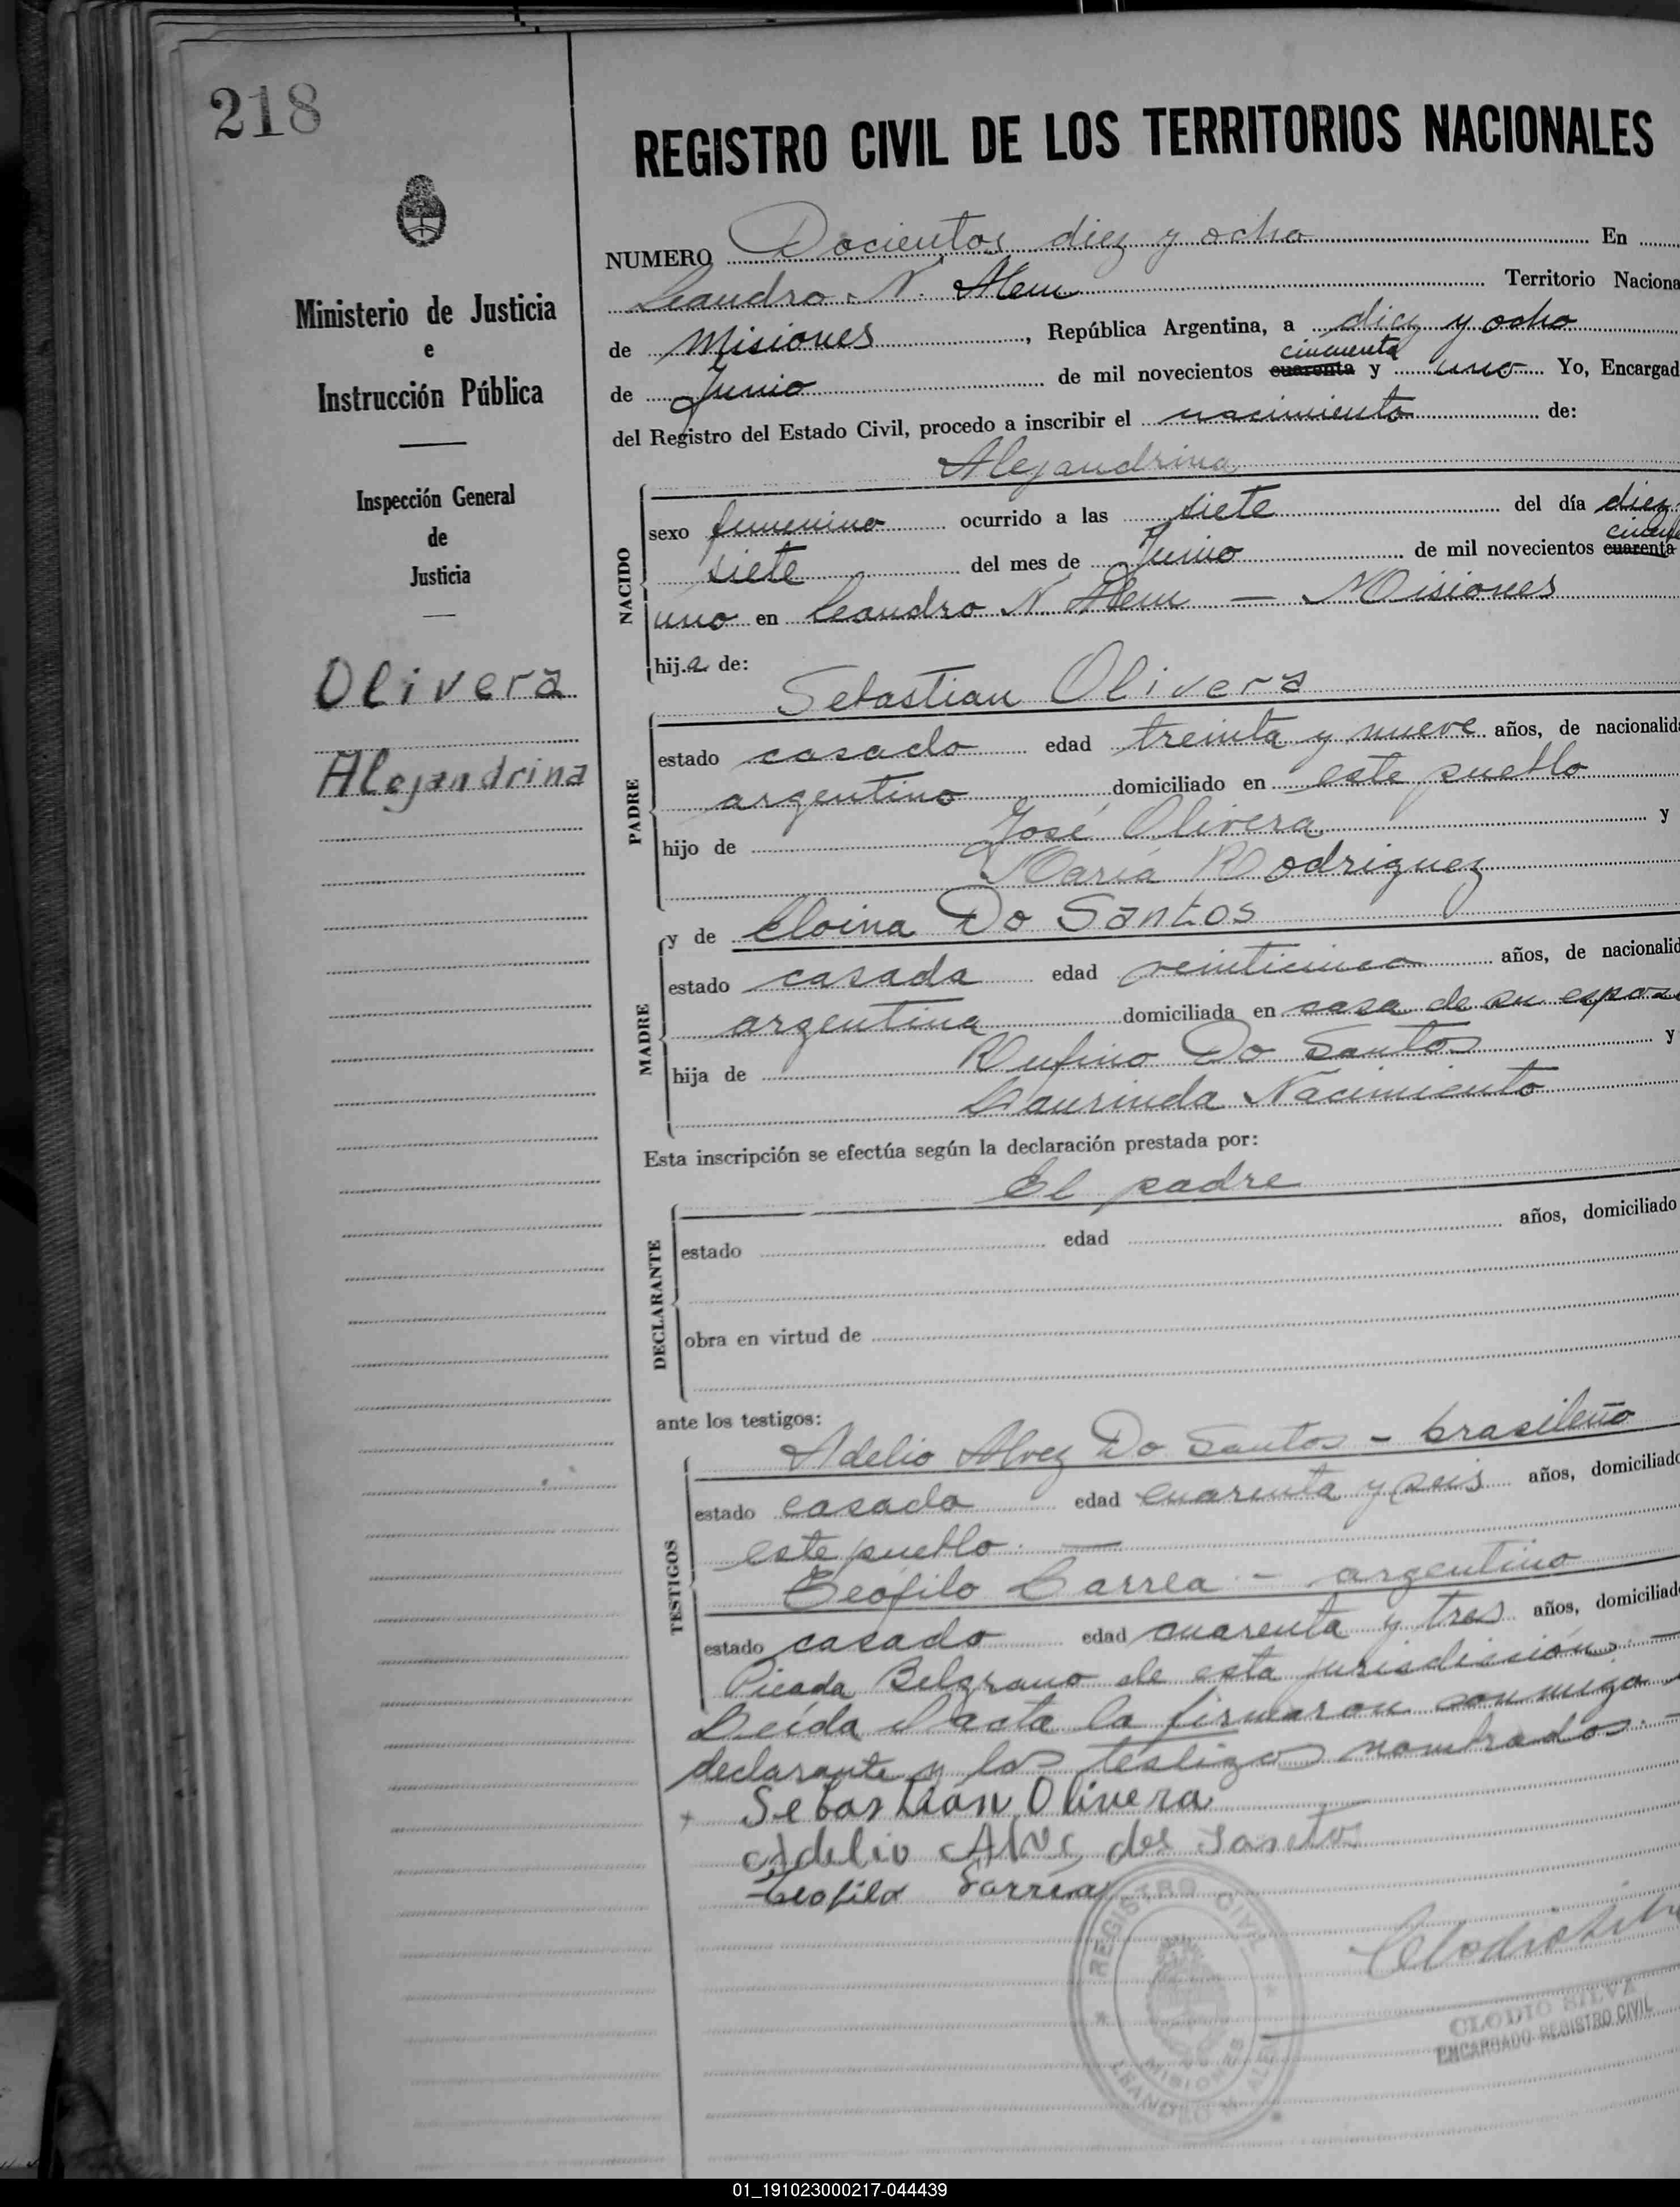 218
REGISTRO CIVIL DE LOS TERRITORIOS NACIONALES
Ministerio de Justicia
e
Instrucción Pública
Inspección General
de
Justicia
Olivera
Alejandrina
NUMERO Docientos diez y ocho En
Leandro N. Alem Territorio Naciona
de Misiones, República Argentina, a diez y ocho
cincuenta
de Junio de mil novecientos cuarenta y uno Yo, Encargad
del Registro del Estado Civil, procedo a inscribir el nacimiento de:
Alejandrina
NACIDO
sexo femenino ocurrido a las siete del día diez
siete del mes de Junio de mil novecientos cuarenta
uno en Leandro N. Alem — Misiones
hija de:
Sebastian Olivera
PADRE
estado casado edad treinta y nueve años, de nacionalid
argentino domiciliado en este pueblo
hijo de José Olivera y
Maria Rodriguez
MADRE
y de Eloina Do Santos
estado casada edad veinticinco años, de nacionalid
argentina domiciliada en casa de su espos
hija de Rufino Do Santos y
Laurinda Nacimiento
Esta inscripción se efectúa según la declaración prestada por:
El padre
DECLARANTE
estado edad años, domiciliado
obra en virtud de
ante los testigos:
TESTIGOS
Adelio Alvez Do Santos - brasileño
estado casado edad cuarenta y seis años, domiciliado
este pueblo. —
Teófilo Larrea - argentino
estado casado edad cuarenta y tres años, domiciliad
Picada Belgrano de esta jurisdicción. —
Leída el acta la firmaron conmigo
declarante y los testigos nombrados. —
Sebastián Olivera
Adelio Alvez dos Santos
Teofilo Larrea
REGISTRO CIVIL
MISIONES
LEANDRO N. ALEM
CLODIO SILVA
ENCARGADO REGISTRO CIVIL
01_191023000217-044439